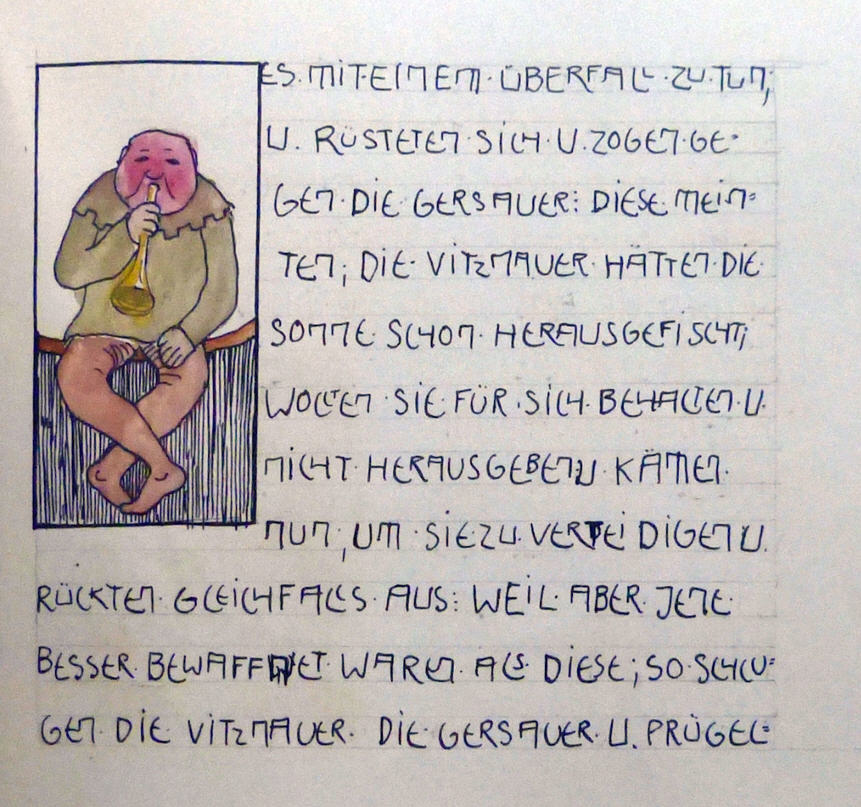 ES. MIT·EINEM· ÜBERFALL·ZU·TUN;
U. RÜSTETEN·SICH·U.ZOGEN·GE-
GEN·DIE GERSAUER: DIESE MEIN=
TEN; DIE· VITZNAUER· HÄTTEN·DIE·
SONNE·SCHON· HERAUSGEFISCHT;
WOLLTEN·SIE·FÜR·SICH·BEHALTEN·U.
NICHT·HERAUSGEBEN U· KÄMEN·
NUN, UM·SIE ZU·VERTEIDIGEN U.
RÜCKTEN·GLEICHFALLS·AUS: WEIL·ABER·JENE·
BESSER·BEWAFFNET·WAREN·ALS·DIESE; SO·SCHLU=
GEN·DIE·VITZNAUER· DIE·GERSAUER·U. PRÜGEL=